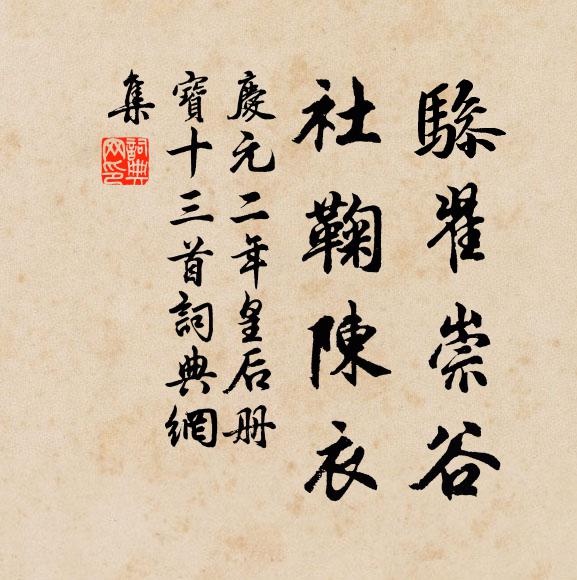 驂翟崇谷
社鞠陳衣
慶元二年皇后册
寶十三首詞典網
集
詞典网印